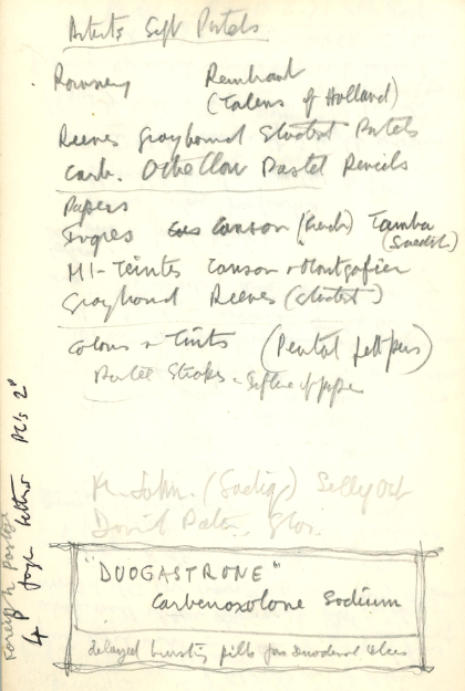 Artists Soft Pastels
Rowney Rembrant
(Talens of Holland)
Reeves Greyhound Student Pastels
Carb. Othello Pastel Pencils
Papers
Ingres Canson (French) Tumba
(Swedish)
MI-Teintes Canson & Montgolfier
Greyhound Reeves (Student)
Colours & Tints (Pentel felt pens)
Strokes - of paper
John. (Sadiq) Selly Oak
David
"DUOGASTRONE"
Carbenoxolone Sodium
delayed bursting pills for Duodenal Ulcer
Foreign Postage
4 letters PCs 2"